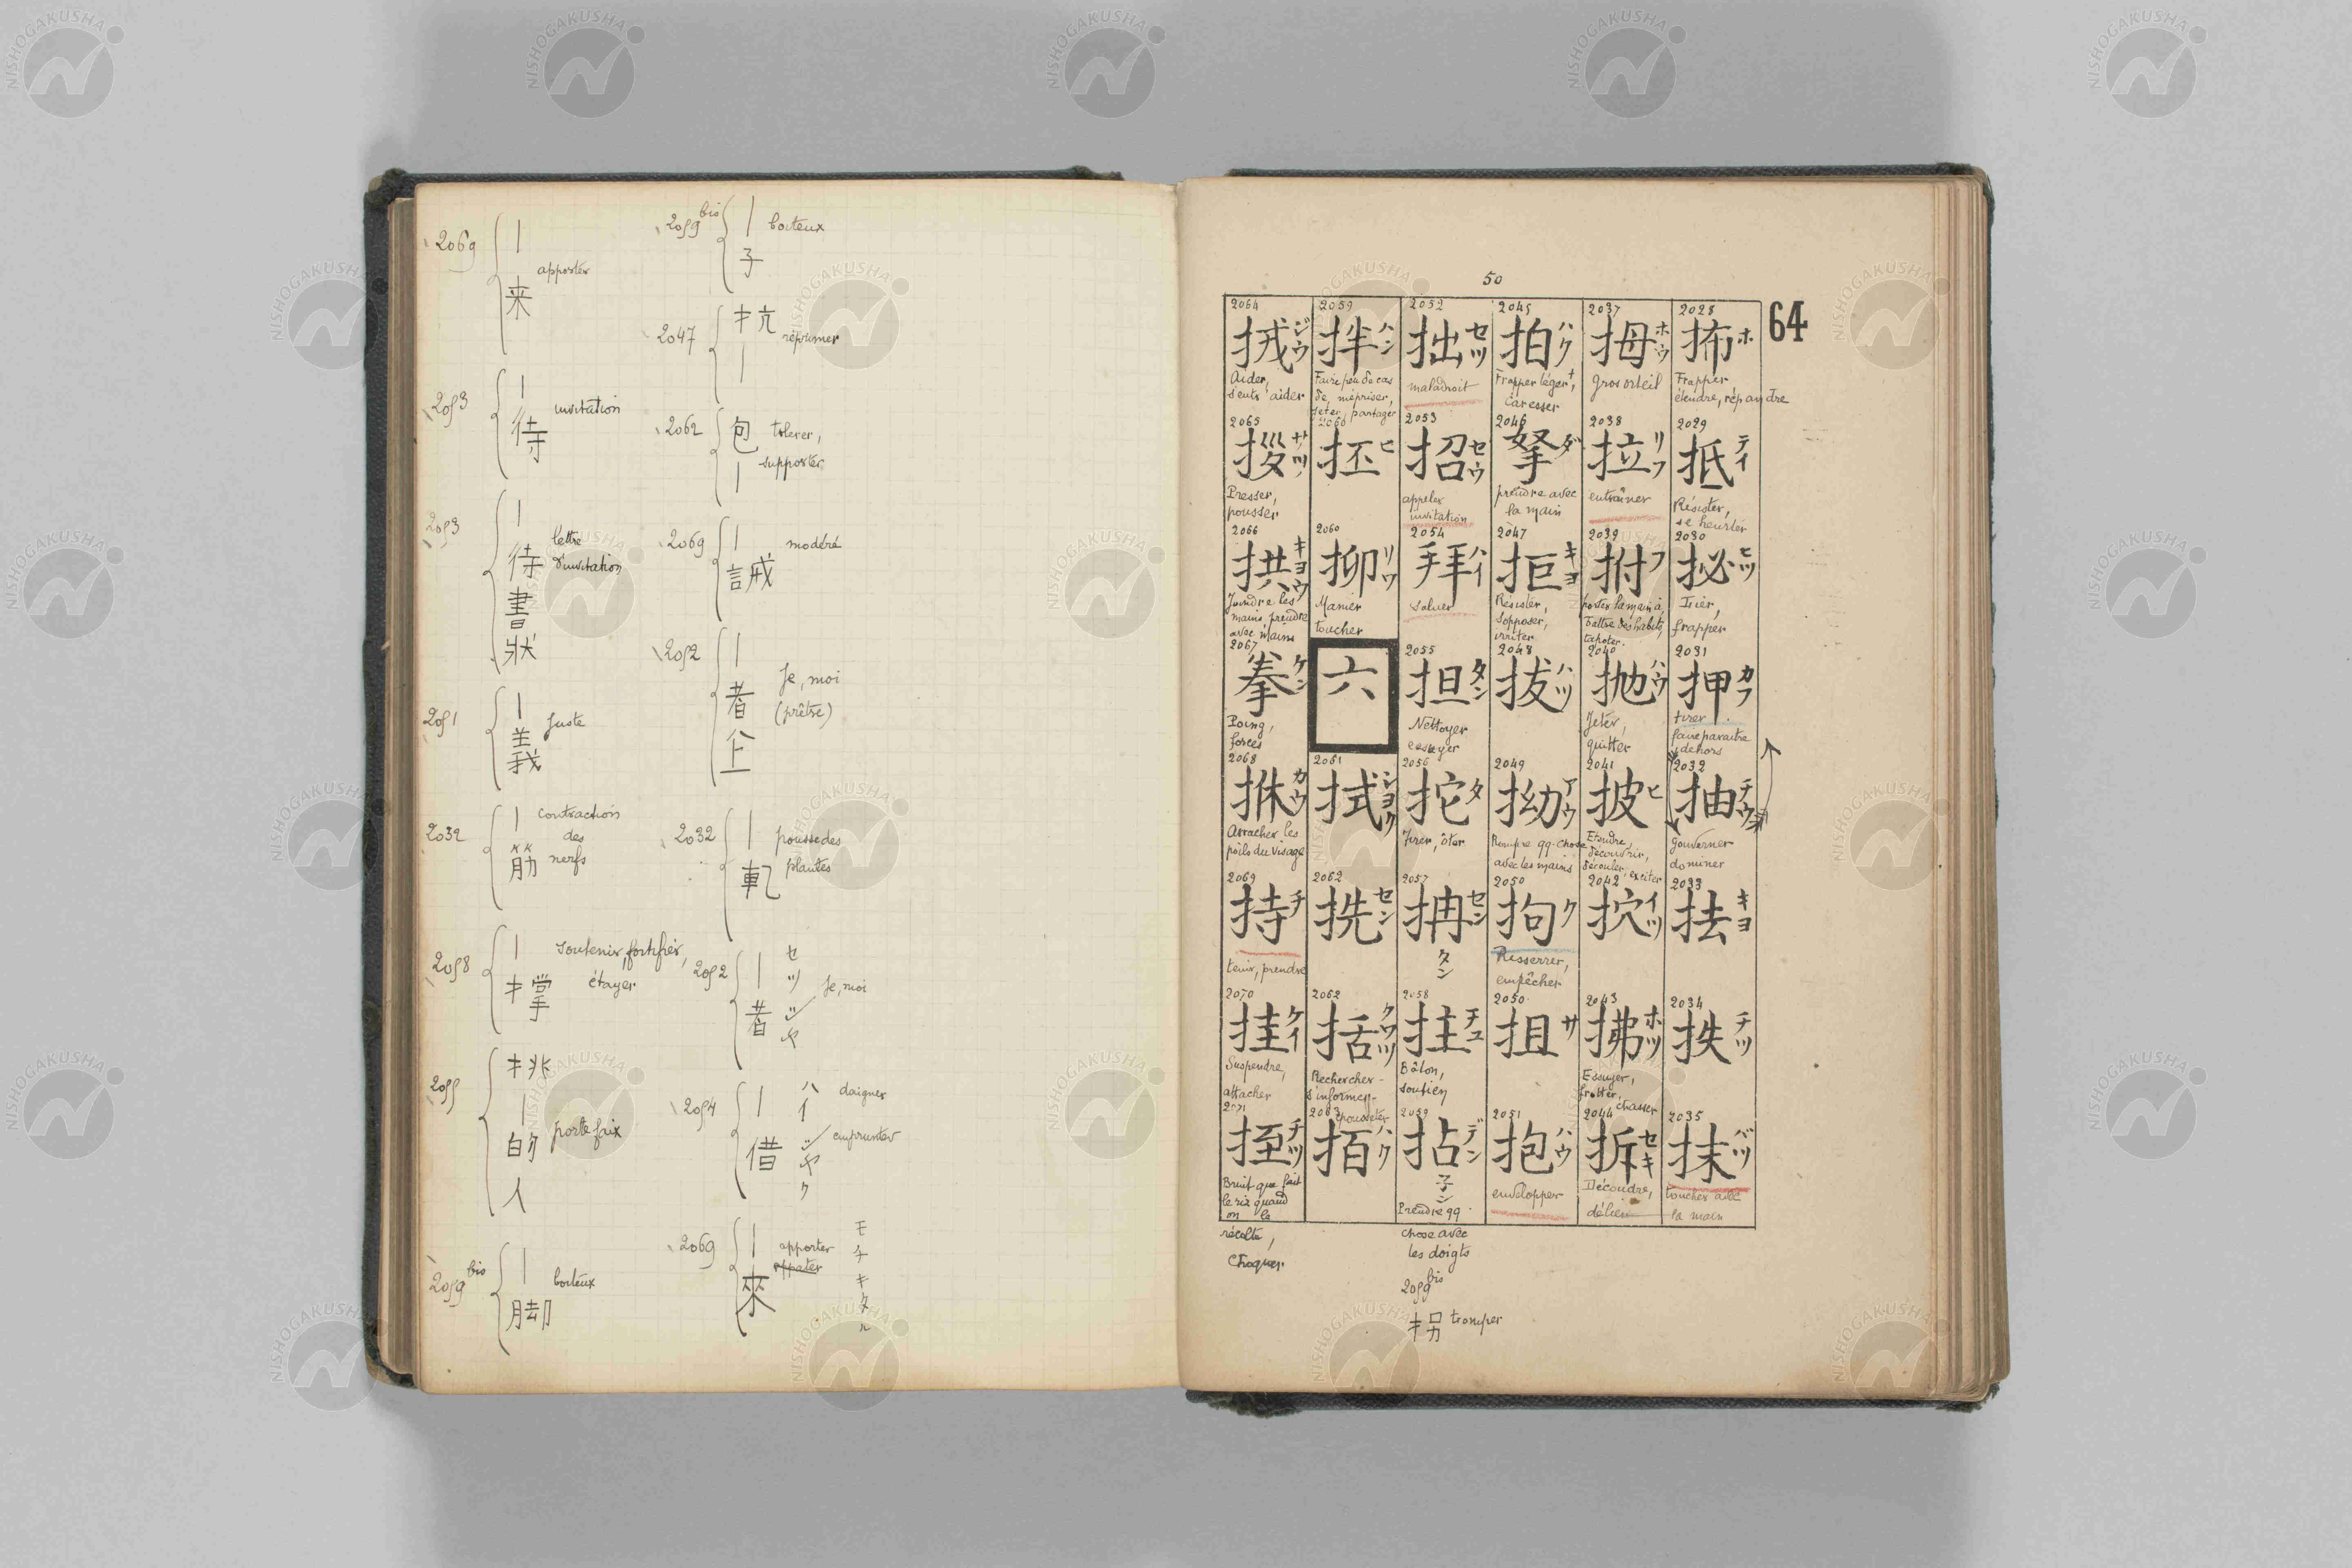 2069
｜
来
apporter
2053
｜
待
invitation
2053
｜
待
書
状
lettre
d'invitation
2051
｜
義
juste
2032
｜
筋
contraction
des
nerfs
2058
｜
掌
soutenir, fortifier,
étayer
2055
挑
｜
的
人
porte faix
2059 bis
｜
脚
boiteux
2059 bis
｜
子
boiteux
2047
抗
｜
réprimer
2062
包
｜
tolérer,
supporter
2069
｜
誡
modéré
2052
｜
者
Je, moi
(prêtre)
2032
｜
軋
pousse des
plantes
2052
｜
者
セ
ツ
シ
ヤ
Je, moi
2054
｜
借
ハ
イ
シ
ヤ
ク
daigner
emprunter
2069
｜
來
apporter
モ
チ
キ
タ
ル
50
64
2028
抪 ホ
Frapper
étendre, répandre
2029
抵 テイ
Résister,
se heurter
2030
抋 ヒツ
frapper
2031
押 カフ
tirer
faire paraitre
dehors
2032
抽 チウ
gouverner
dominer
2033
抾 キヨ
2034
抶 チツ
2035
抹 バツ
toucher avec
la main
2037
拇 ホウ
gros orteil
2038
拉 リフ
entraîner
2039
拊 フ
porter la main à,
battre des habits,
tapoter
2040
抛 ハウ
Jeter,
quitter
2041
披 ヒ
Etendre,
découvrir,
découler, exciter
2042
抭 イツ
2043
拂 ホツ
Essuyer,
frotter,
chasser
2044
拆 セキ
Découdre,
délier
2045
拍 ハク
Frapper légert,
caresser
2046
拏 ダ
prendre avec
la main
2047
拒 キヨ
Résister,
s'opposer,
irriter
2048
拔 ハツ
2049
拗 アウ
Rompre qq. chose
avec les mains
2050
拘 ク
Resserrer,
empêcher
2050
抯 サ
2051
抱 ハウ
envelopper
2052
拙 セツ
maladroit
2053
招 セウ
appeler
invitation
2054
拜 ハイ
saluer
2055
担 タン
Nettoyer
essuyer
2056
拕 タ
Tirer, ôter
2057
抩 セン
タン
2058
拄 チユ
Bâton,
soutien
2059
拈 デン
子ン
Prendre qq
chose avec
les doigts
2059 bis
拐 tromper
2059
拌 ハン
Faire peu de cas
de, mépriser,
jeter, partager
2060
抷 ヒ
2060
抑 リウ
Manier
toucher
六
2061
拭 シヨク
2062
挩 セン
2062
括 クワツ
Rechercher
s'informer
épousseter
2063
拍 ハク
2064
拭 ジウ
Aider,
s'entr'aider
2065
拶 サツ
Presser,
pousser
2066
拱 キヨウ
Joindre les
mains, prendre
avec mains
2067
拳 ケン
Poing,
forces
2068
挀 カウ
Arracher les
poils du visage
2069
持 チ
tenir, prendre
2070
挂 ケイ
Suspendre,
attacher
2071
挃 チツ
Bruit que fait
le riz quand
on le
récolte,
Choquer